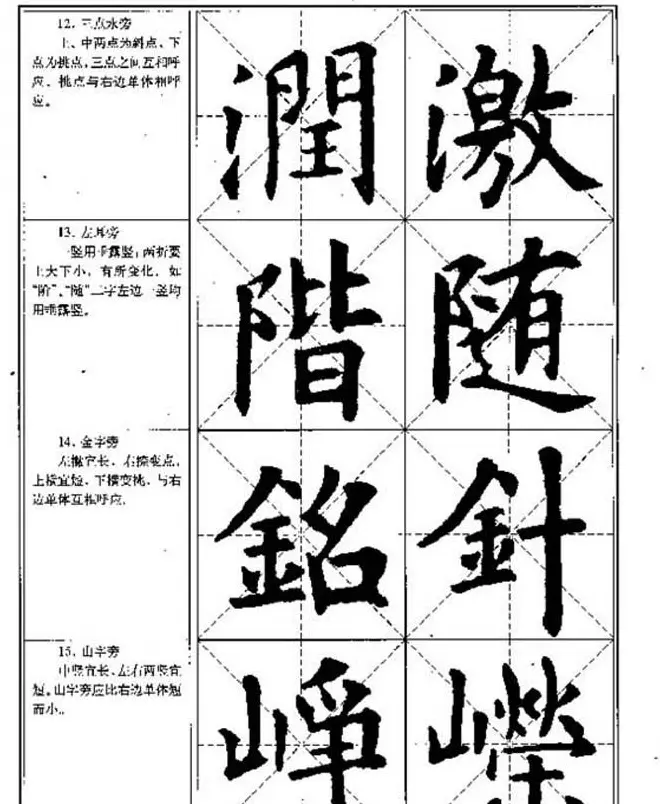 12. 三点水旁
上、中两点为斜点，下
点为挑点，三点之间互相呼
应，挑点与右边单体相呼
应。
潤 激
13. 左耳旁
一竖用垂露竖；两折要
上大下小，有所变化，如
“阶”、“随”二字左边一竖均
用垂露竖。
階 随
14. 金字旁
左撇宜长，右捺变点，
上横宜短，下横变挑，与右
边单体互相呼应。
銘 針
15. 山字旁
中竖宜长，左右两竖宜
短。山字旁应比右边单体短
而小。
崢 嶸